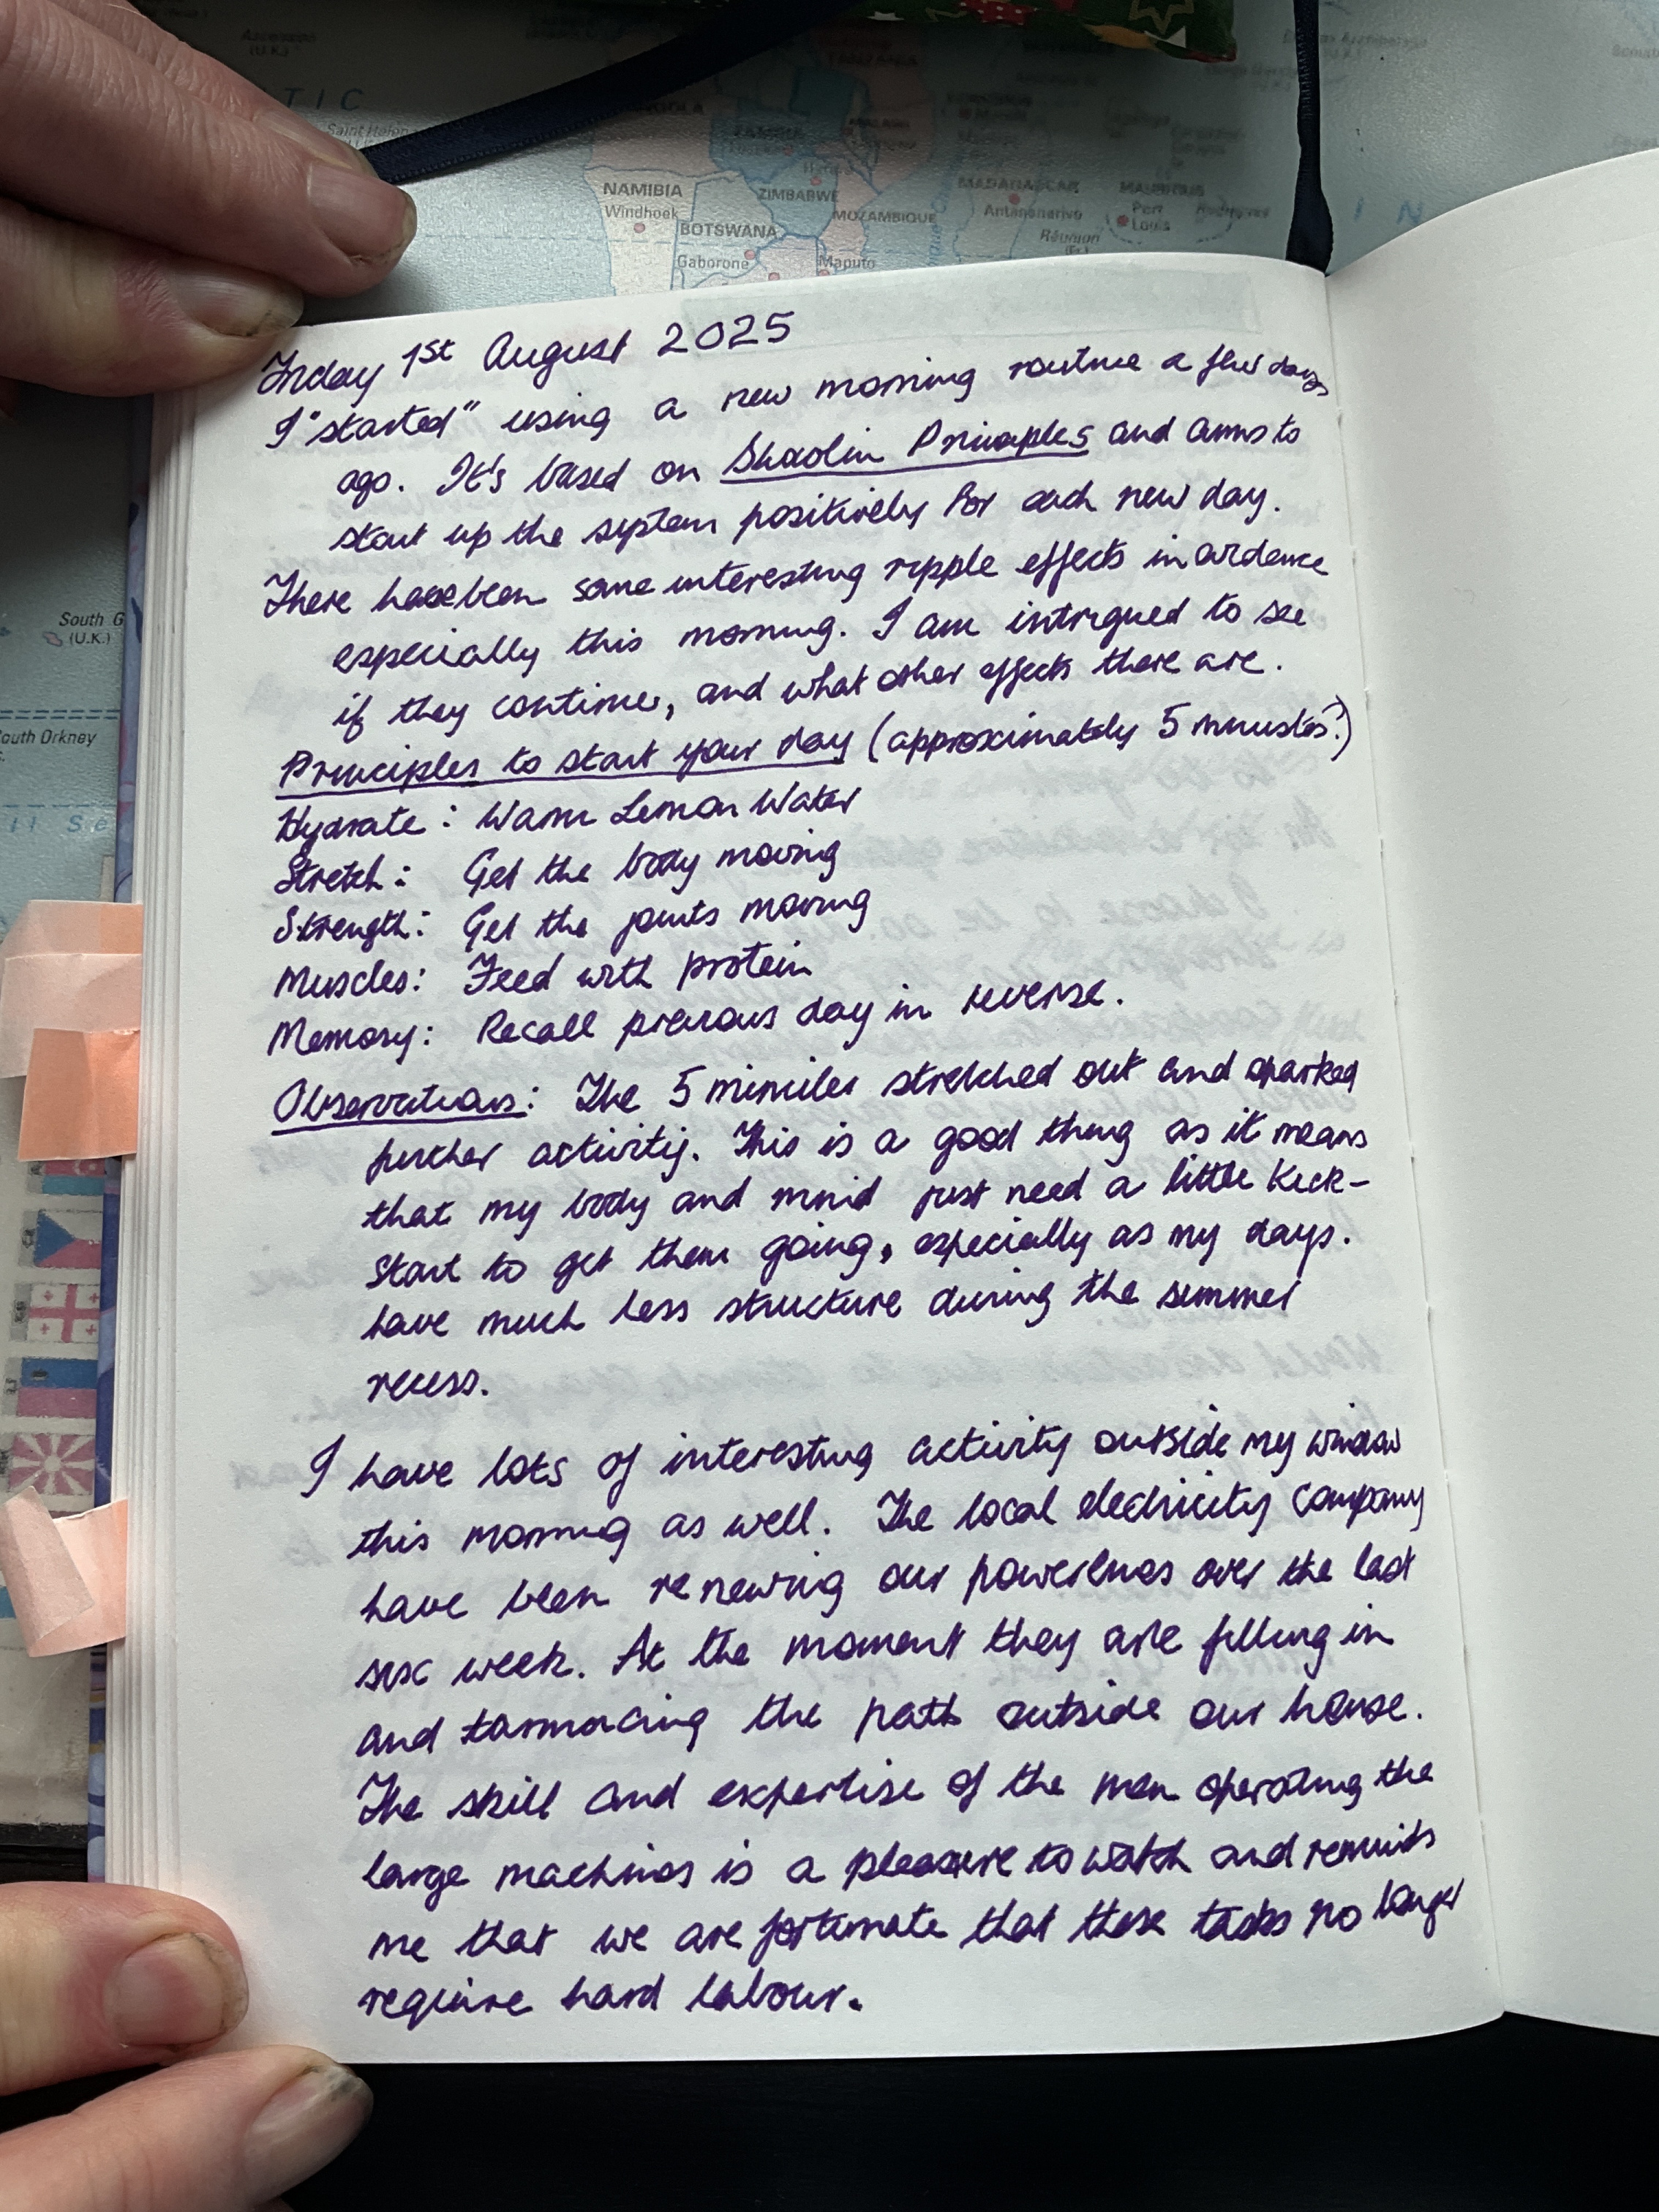 TIC
Saint Helen
NAMIBIA
Windhoek
ZIMBABWE
BOTSWANA
MOZAMBIQUE
Gaborone
Maputo
MADAGASCAR
Antananarivo
MAURITIUS
Port
Louis
Réunion
(Fr.)
I N
South G
(U.K.)
outh Orkney
Friday 1st August 2025
I "started" using a new morning routine a few days
ago. It's based on Shaolin Principles and aims to
start up the system positively for each new day.
There have been some interesting ripple effects in evidence
especially this morning. I am intrigued to see
if they continue, and what other effects there are.
Principles to start your day (approximately 5 minutes?)
Hydrate: Warm Lemon Water
Stretch: Get the body moving
Strength: Get the joints moving
Muscles: Feed with protein
Memory: Recall previous day in reverse.
Observations: The 5 minutes stretched out and sparked
further activity. This is a good thing as it means
that my body and mind just need a little kick-
start to get them going, especially as my days.
have much less structure during the summer
recess.
I have lots of interesting activity outside my window
this morning as well. The local electricity company
have been renewing our powerlines over the last
six week. At the moment they are filling in
and tarmacing the path outside our house.
The skill and expertise of the men operating the
large machines is a pleasure to watch and reminds
me that we are fortunate that these tasks no longer
require hard labour.